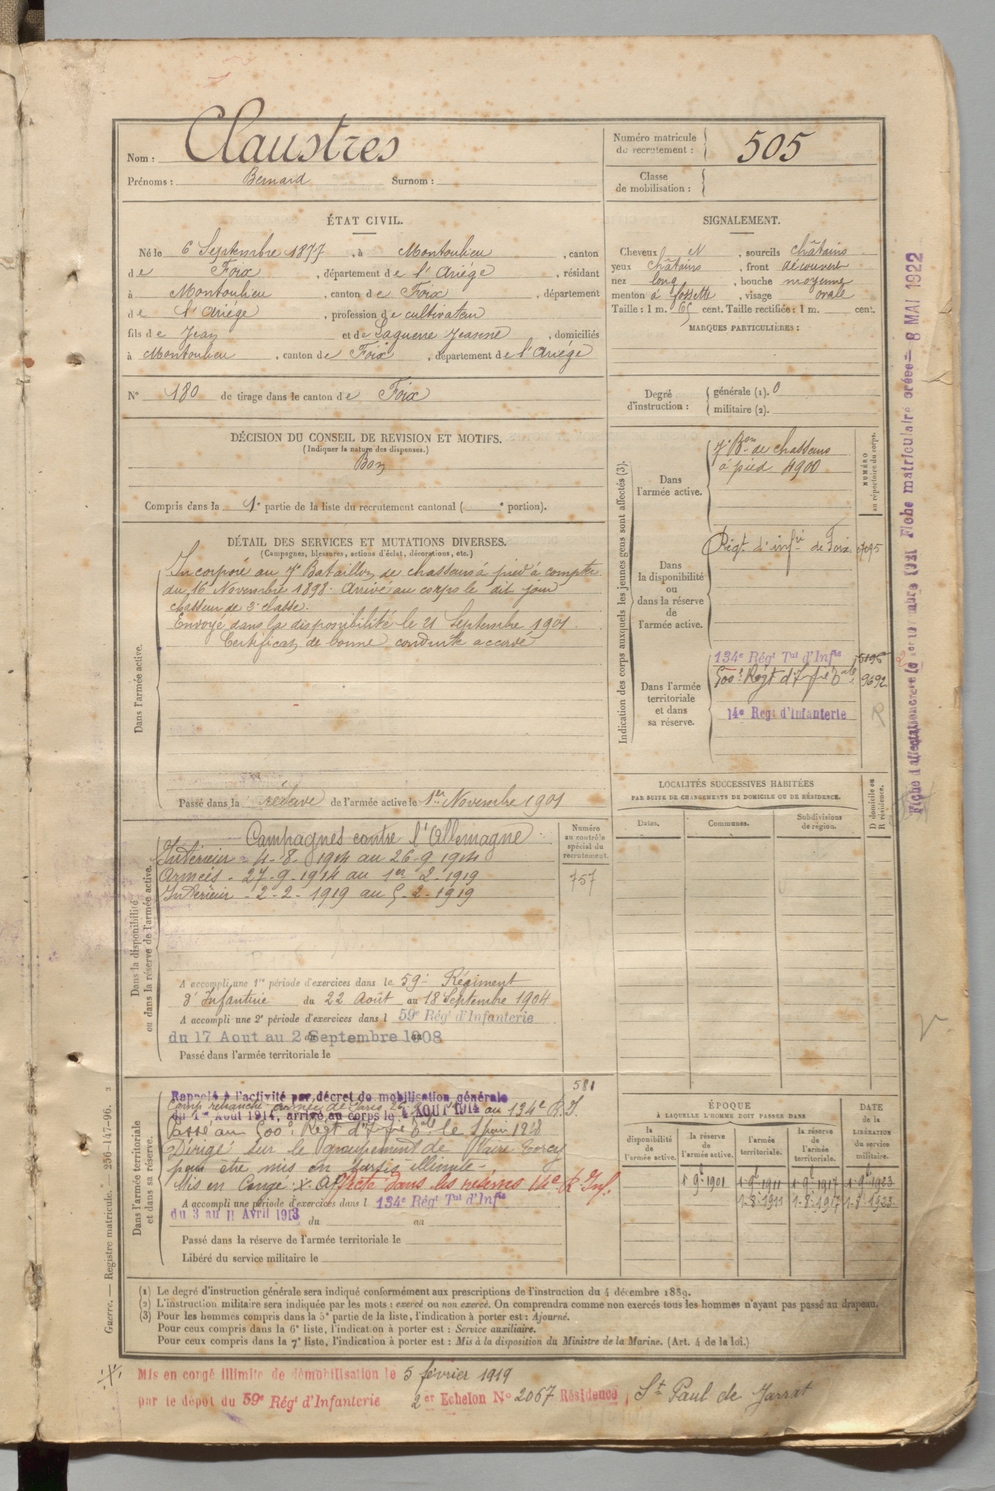 Nom : Claustres
Prénoms : Bernard Surnom :
Numéro matricule du recrutement : 505
Classe de mobilisation :
ÉTAT CIVIL.
Né le 6 Septembre 1877, à Montoulieu, canton
de Foix, département de l'Ariège, résidant
à Montoulieu, canton de Foix, département
de l'Ariège, profession de cultivateur
fils de Jean et de Laguerre Jeanne, domiciliés
à Montoulieu, canton de Foix, département de l'Ariège
N° 180 de tirage dans le canton de Foix
SIGNALEMENT.
Cheveux N, sourcils châtains
yeux châtains, front découvert
nez long, bouche moyenne
menton à fossette, visage ovale
Taille : 1 m. 65 cent. Taille rectifiée : 1 m. cent.
MARQUES PARTICULIÈRES :
Degré d'instruction : générale (1). 0
militaire (2).
DÉCISION DU CONSEIL DE REVISION ET MOTIFS.
(Indiquer la nature des dispenses.)
Bon
Compris dans la 1e partie de la liste du recrutement cantonal ( e portion).
DÉTAIL DES SERVICES ET MUTATIONS DIVERSES.
(Campagnes, blessures, actions d'éclat, décorations, etc.)
Dans l'armée active.
Incorporé au 7e Bataillon de chasseurs à pied à compter
du 16 Novembre 1898. Arrivé au corps le dit jour
chasseur de 2e classe.
Envoyé dans la disponibilité le 21 Septembre 1901.
Certificat de bonne conduite accordé
Passé dans la réserve de l'armée active le 1er Novembre 1901
Indication des corps auxquels les jeunes gens sont affectés (3).
NUMÉRO au répertoire du corps.
Dans l'armée active.
7e Bon de chasseurs
à pied 4900
Dans la disponibilité ou dans la réserve de l'armée active.
Régt d'infie de Foix
Dans l'armée territoriale et dans sa réserve.
134e Régt Tal d'Infie
500e Régt d'Infie Dale 9692
14e Regt d'Infanterie
R
LOCALITÉS SUCCESSIVES HABITÉES
PAR SUITE DE CHANGEMENTS DE DOMICILE OU DE RÉSIDENCE.
Dates. Communes. Subdivisions de région. D domicile ou R résidence.
Dans la disponibilité ou dans la réserve de l'armée active.
Campagnes contre l'Allemagne
Intérieur - 4-8-1914 au 26-9-1914
Armées - 27-9-1914 au 1er 2-1919
Intérieur - 2-2-1919 au 5-2-1919
Numéro au contrôle spécial du recrutement.
757
A accompli une 1re période d'exercices dans le 59e Régiment
d'Infanterie du 22 Août au 18 Septembre 1904
A accompli une 2e période d'exercices dans l 59e Régt d'Infanterie
du 17 Aout au 2 Septembre 1908
Passé dans l'armée territoriale le
Dans l'armée territoriale et dans sa réserve.
581
Rappelé à l'activité par décret de mobilisation générale
du 1er Août 1914, arrivé au corps le 4 AOUT 1914 au 134e R.I.
Passé au 500e Régt d'Infie Dale le 1 Juin 1918
Dirigé sur le groupement de Vaire Torcy
pour être mis en sursis illimité -
Mis en congé X Affecté dans les réserves 14e R. Inf.
A accompli une période d'exercices dans l 134e Régt Tal d'Infie
du 3 au 11 Avril 1913 du au
Passé dans la réserve de l'armée territoriale le
Libéré du service militaire le
ÉPOQUE
À LAQUELLE L'HOMME DOIT PASSER DANS
la disponibilité de l'armée active. la réserve de l'armée active. l'armée territoriale. la réserve de l'armée territoriale.
DATE de la LIBÉRATION du service militaire.
1 9bre 1901 1 9bre 1911 1 9bre 1917 1 9bre 1923
1-8-1911 1-8-1917 1-8-1923
(1) Le degré d'instruction générale sera indiqué conformément aux prescriptions de l'instruction du 4 décembre 1889.
(2) L'instruction militaire sera indiquée par les mots : exercé ou non exercé. On comprendra comme non exercés tous les hommes n'ayant pas passé au drapeau.
(3) Pour les hommes compris dans la 5e partie de la liste, l'indication à porter est : Ajourné.
Pour ceux compris dans la 6e liste, l'indication à porter est : Service auxiliaire.
Pour ceux compris dans la 7e liste, l'indication à porter est : Mis à la disposition du Ministre de la Marine. (Art. 4 de la loi.)
X Mis en congé illimité de démobilisation le 5 février 1919
par le dépôt du 59e Régt d'Infanterie 2er Echelon N° 2067 Résidence, St Paul de Jarrat
Guerre. — Registre matricule. 256-147-96.
Fiche matriculaire créée — 8 MAI 1922